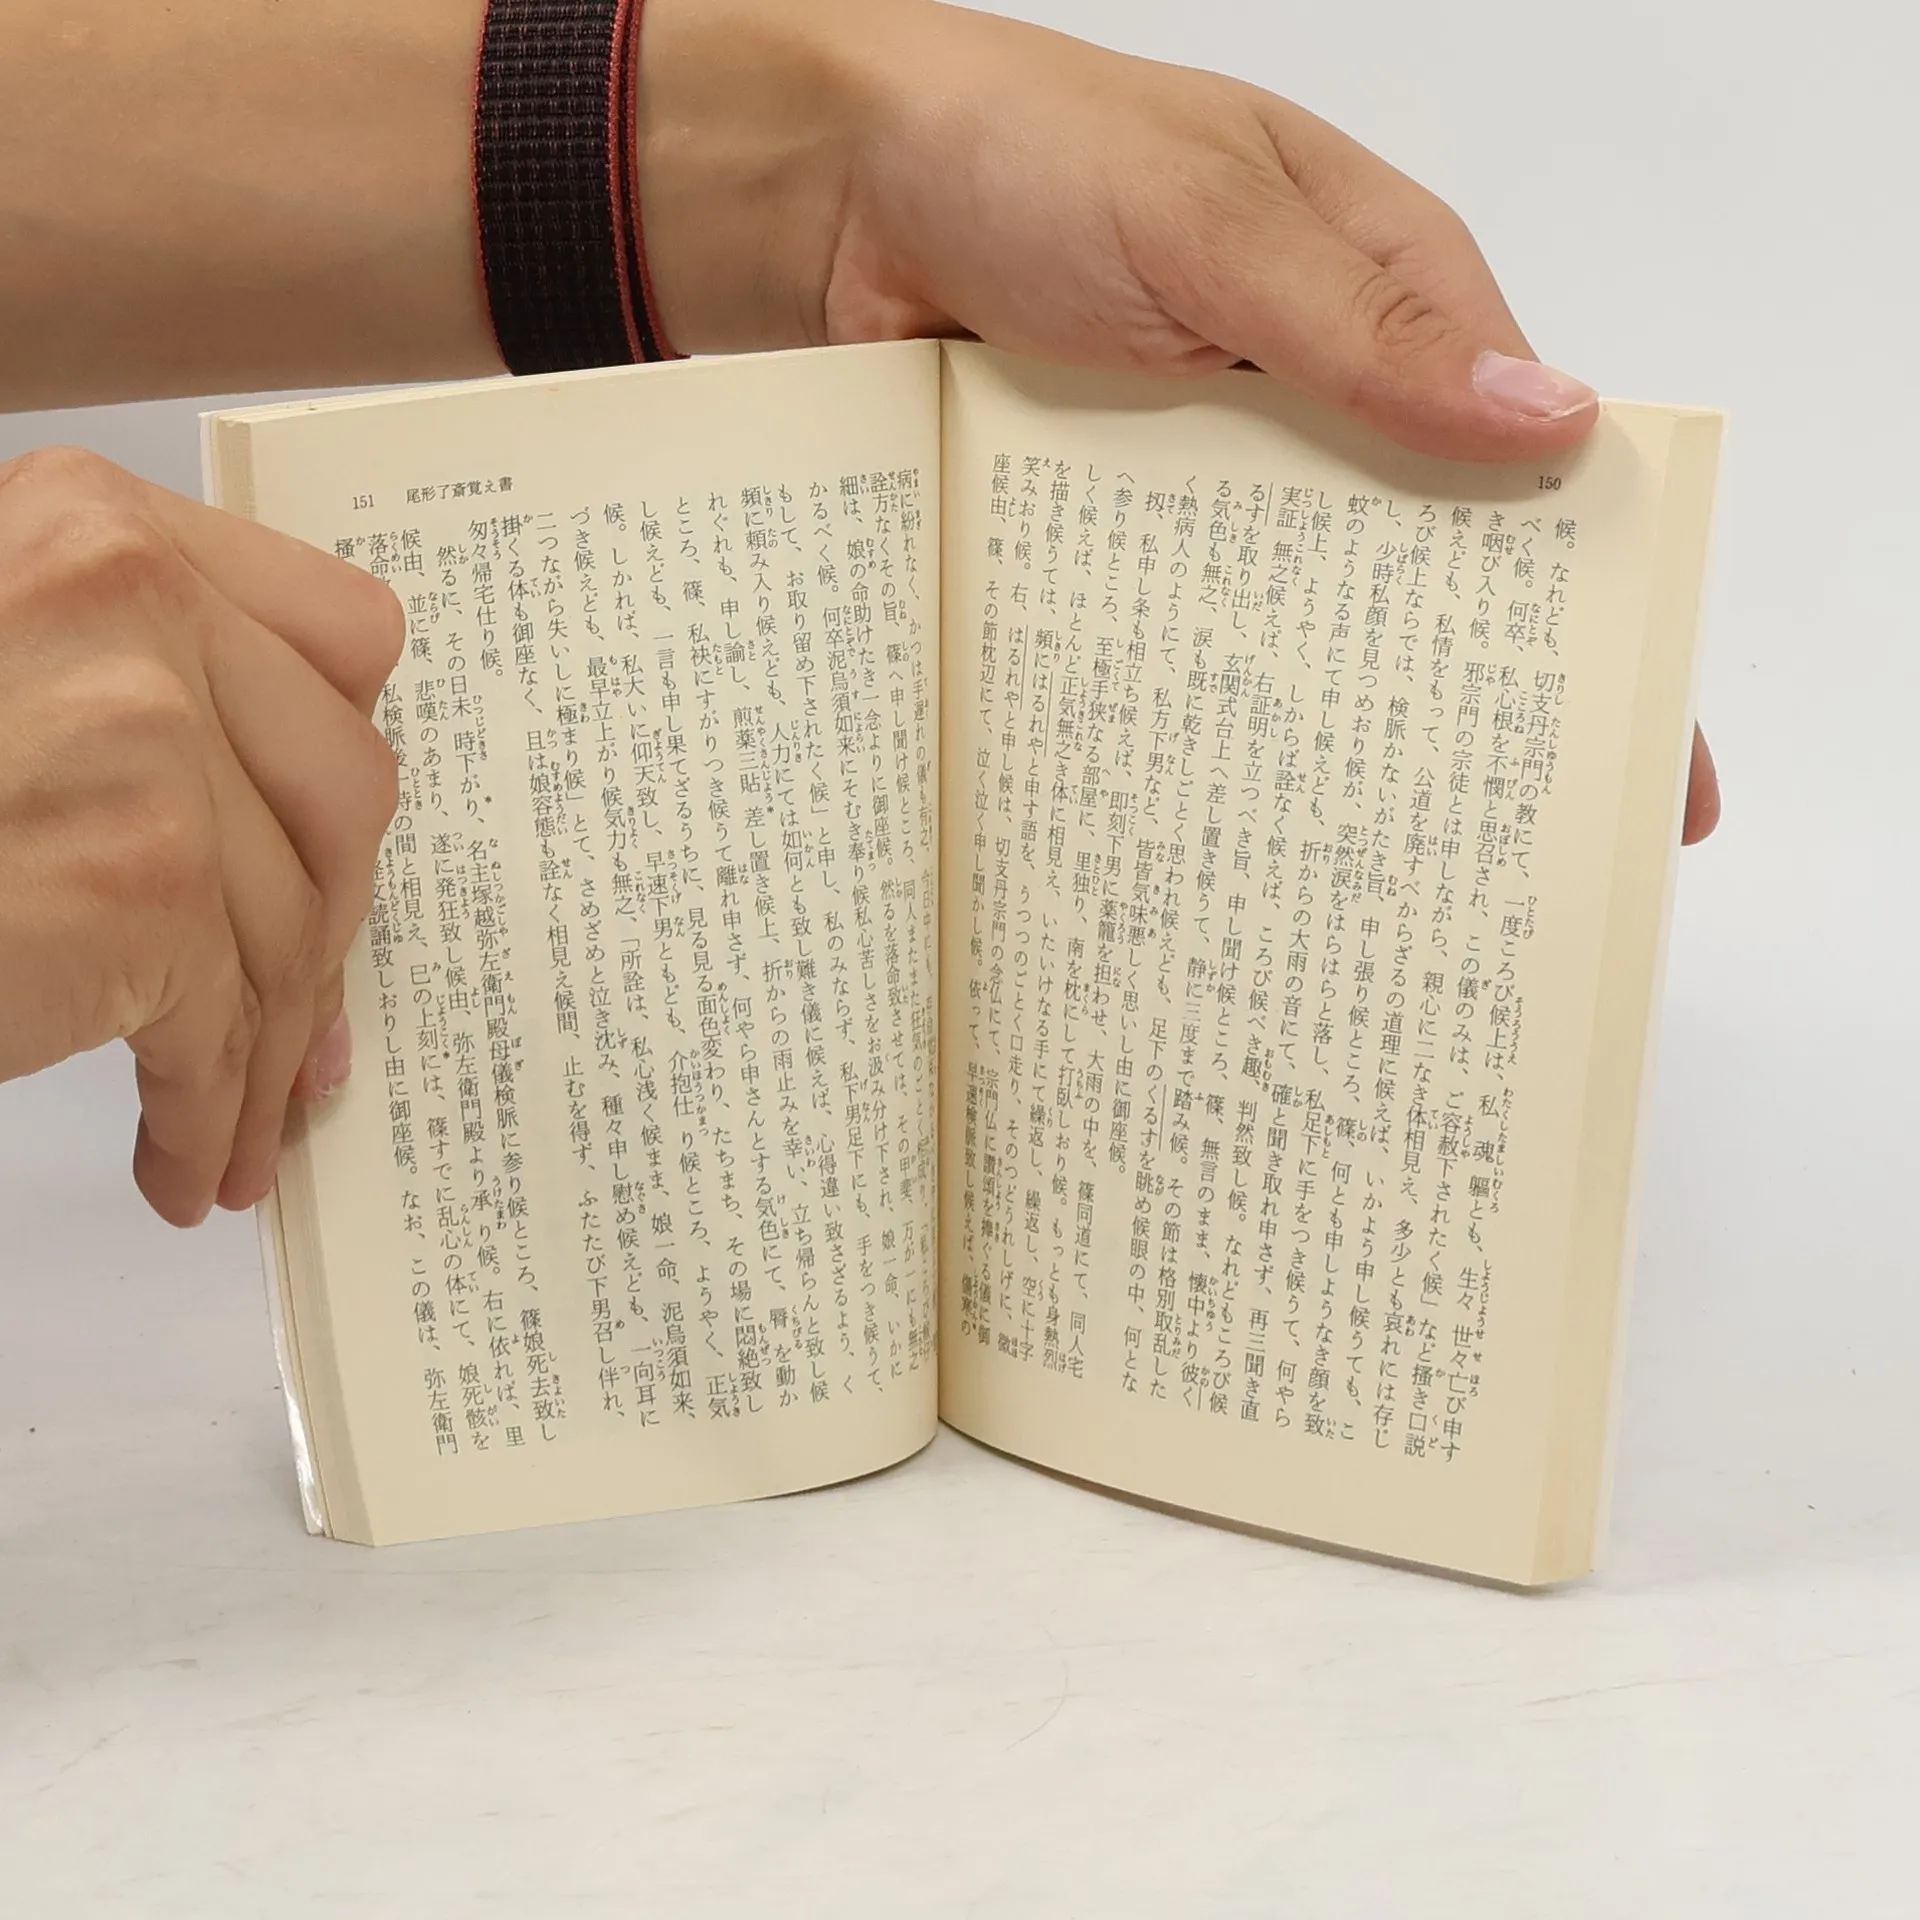 150
候。なれども、切支丹宗門の教にて、一度ころび候上は、私魂軀とも、生々世々亡び申す
べく候。何卒、私心根を不憫と思召され、この儀のみは、ご容赦下されたく候」など掻き口説
き咽び入り候。邪宗門の宗徒とは申しながら、親心に二なき体相見え、多少とも哀れには存じ
候えども、私情をもって、公道を廃すべからざるの道理に候えば、いかよう申し候うても、こ
ろび候上ならでは、検脈かないがたき旨、申し張り候ところ、篠、何とも申しようなき顔を致
し、少時私顔を見つめおり候が、突然涙をはらはらと落し、私足下に手をつき候うて、何やら
蚊のようなる声にて申し候えども、折からの大雨の音にて、確と聞き取れ申さず、再三聞き直
し候上、ようやく、しからば詮なく候えば、ころび候べき趣、判然致し候。なれどもころび候
実証無之候えば、右証明を立つべき旨、申し聞け候ところ、篠、無言のまま、懐中より彼く
るすを取り出し、玄関式台上へ差し置き候うて、静に三度まで踏み候。その節は格別取乱した
る気色も無之、涙も既に乾きしごとく思われ候えども、足下のくるすを眺め候眼の中、何とな
く熱病人のようにて、私方下男など、皆皆気味悪しく思いし由に御座候。
扨、私申し条も相立ち候えば、即刻下男に薬籠を担わせ、大雨の中を、篠同道にて、同人宅
へ参り候ところ、至極手狭なる部屋に、里独り、南を枕にして打臥しおり候。もっとも身熱烈
しく候えば、ほとんど正気無之き体に相見え、いたいけなる手にて繰返し、繰返し、空に十字
を描き候うては、頻にはるれやと申す語を、うつつのごとく口走り、そのつどうれしげに、微
笑みおり候。右、はるれやと申し候は、切支丹宗門の念仏にて、宗門仏に讃頌を捧ぐる儀に御
座候由、篠、その節枕辺にて、泣く泣く申し聞かし候。依って、早速検脈致し候えば、傷寒の
151 尾形了斎覚え書
病に紛れなく、かつは手遅れの儀も有之、今日中にも、
詮方なくその旨、篠へ申し聞け候ところ、同人またまた狂気のごとく
細は、娘の命助けたき一念よりに御座候。然るを落命致させては、その甲斐、万が一にも無之
かるべく候。何卒泥烏須如来にそむき奉り候私心苦しさをお汲み分け下され、娘一命、いかに
もして、お取り留め下されたく候」と申し、私のみならず、私下男足下にも、手をつき候うて、
頻に頼み入り候えども、人力にては如何とも致し難き儀に候えば、心得違い致さざるよう、く
れぐれも、申し諭し、煎薬三貼差し置き候上、折からの雨止みを幸い、立ち帰らんと致し候
ところ、篠、私袂にすがりつき候うて離れ申さず、何やら申さんとする気色にて、脣を動か
し候えども、一言も申し果てざるうちに、見る見る面色変わり、たちまち、その場に悶絶致し
候。しかれば、私大いに仰天致し、早速下男ともども、介抱仕り候ところ、ようやく、正気
づき候えども、最早立上がり候気力も無之、「所詮は、私心浅く候まま、娘一命、泥烏須如来、
二つながら失いしに極まり候」とて、さめざめと泣き沈み、種々申し慰め候えども、一向耳に
掛くる体も御座なく、且は娘容態も詮なく相見え候間、止むを得ず、ふたたび下男召し伴れ、
匆々帰宅仕り候。
然るに、その日未時下がり、名主塚越弥左衛門殿母儀検脈に参り候ところ、篠娘死去致し
候由、並に篠、悲嘆のあまり、遂に発狂致し候由、弥左衛門殿より承り候。右に依れば、里
落命 私検脈後一時の間と相見え、巳の上刻には、篠すでに乱心の体にて、娘死骸を
掻 経文読誦致しおりし由に御座候。なお、この儀は、弥左衛門